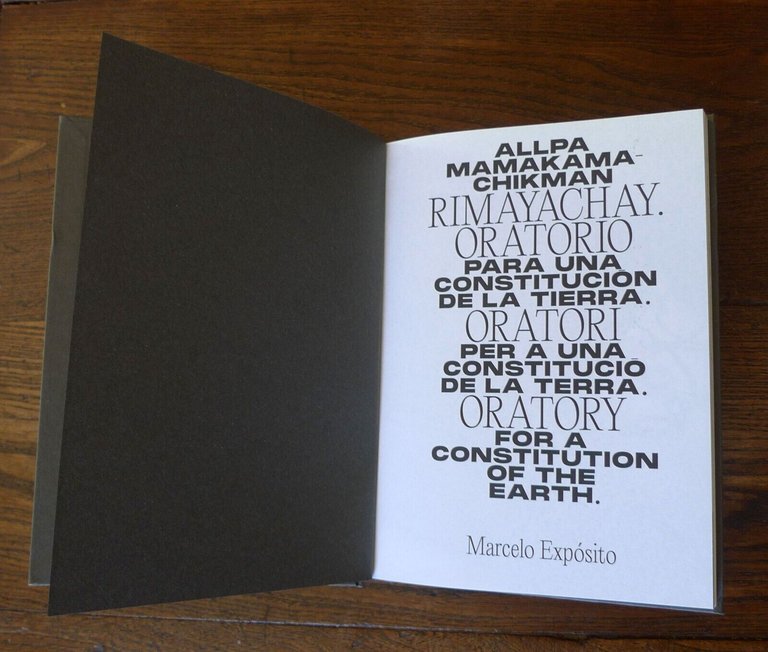 ALLPA
MAMAKAMA-
CHIKMAN
RIMAYACHAY.
ORATORIO
PARA UNA
CONSTITUCIÓN
DE LA TIERRA.
ORATORI
PER A UNA
CONSTITUCIÓ
DE LA TERRA.
ORATORY
FOR A
CONSTITUTION
OF THE
EARTH.
Marcelo Expósito